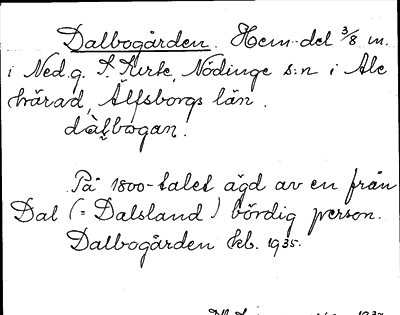 Dalbogården. Hem.del 3/8 m.
i Ned.g. S. Kirke, Nödinge s:n i Ale
härad, Älfsborgs län.
dàlbogan.
På 1800-talet ägd av en från
Dal (= Dalsland) bördig person.
Dalbogården kb. 1935.